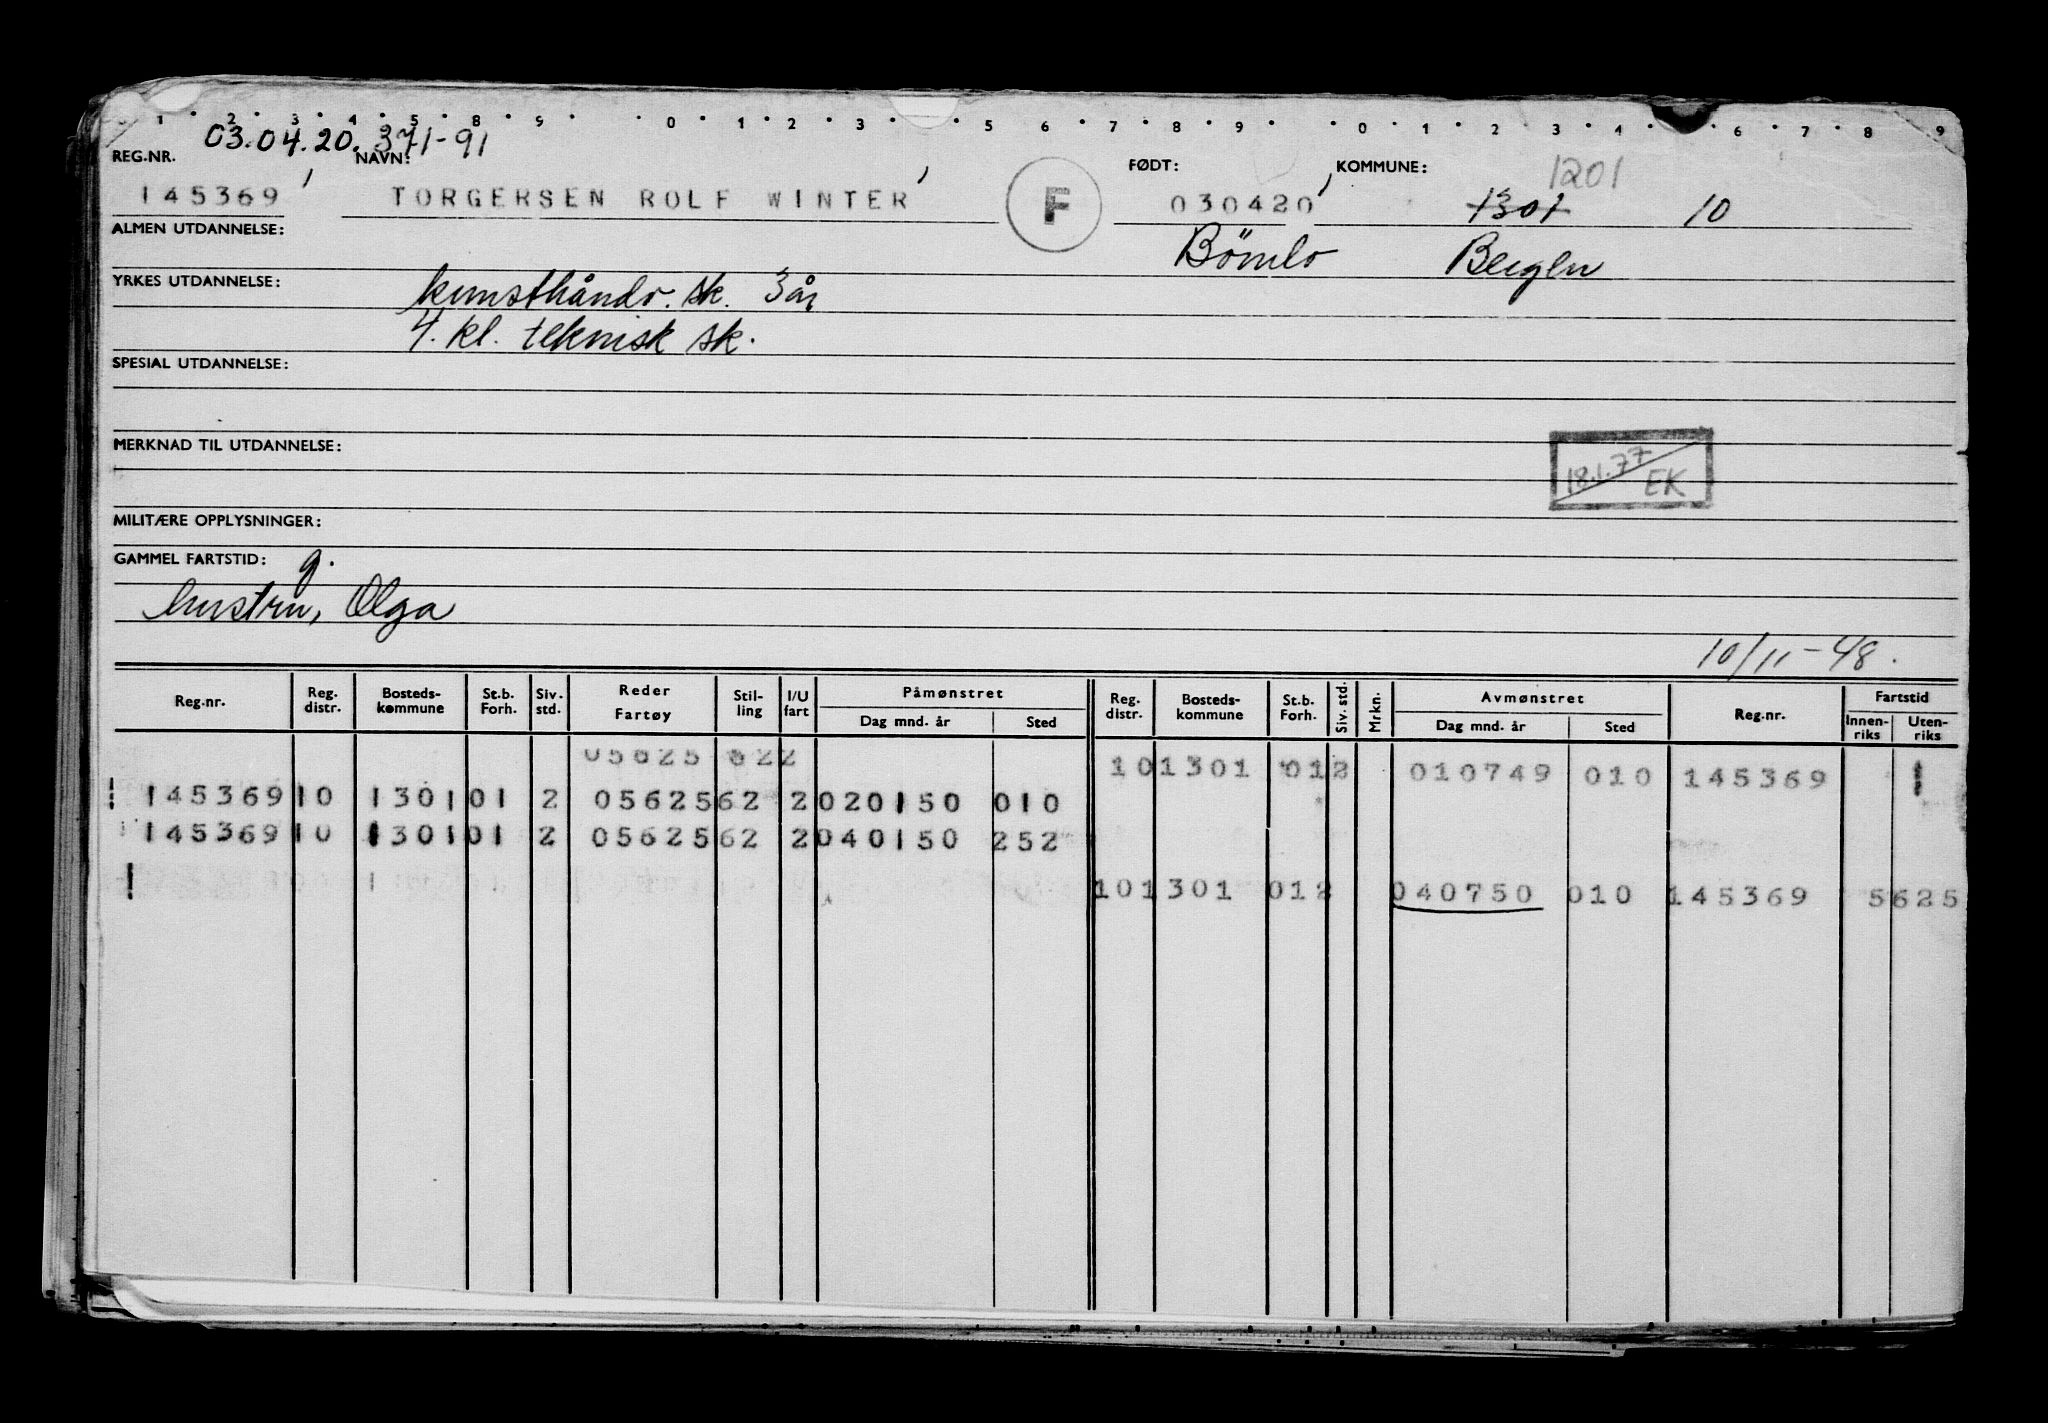 1 2 3 4 5 8 9 0 1 2 3 5 6 7 8 9 0 1 2 3 4 6 7 8 9
03.04.20. 371-91
REG.NR. NAVN: FØDT: KOMMUNE: 1201
145369 TORGERSEN ROLF WINTER F 030420 1301 10
ALMEN UTDANNELSE: Bömlo Bergen
YRKES UTDANNELSE: kunsthåndv. sk. 3 år
4. kl. teknisk sk.
SPESIAL UTDANNELSE:
MERKNAD TIL UTDANNELSE:
18.1.77 EK
MILITÆRE OPPLYSNINGER:
GAMMEL FARTSTID: g.
hustru, Olga
10/11-48.
Reg.nr. Reg. distr. Bosteds-kommune St.b. Forh. Siv. std. Reder Fartøy Stil-ling I/U fart Påmønstret Dag mnd. år Sted Reg. distr. Bosteds-kommune St.b. Forh. Siv. std. Mrkn. Avmønstret Dag mnd. år Sted Reg.nr. Fartstid Innen-riks Uten-riks
05625 622 10 1301 012 010749 010 145369
145369 10 1301 01 2 05625 62 2 020150 010
145369 10 1301 01 2 05625 62 2 040150 252
10 1301 012 040750 010 145369 5625